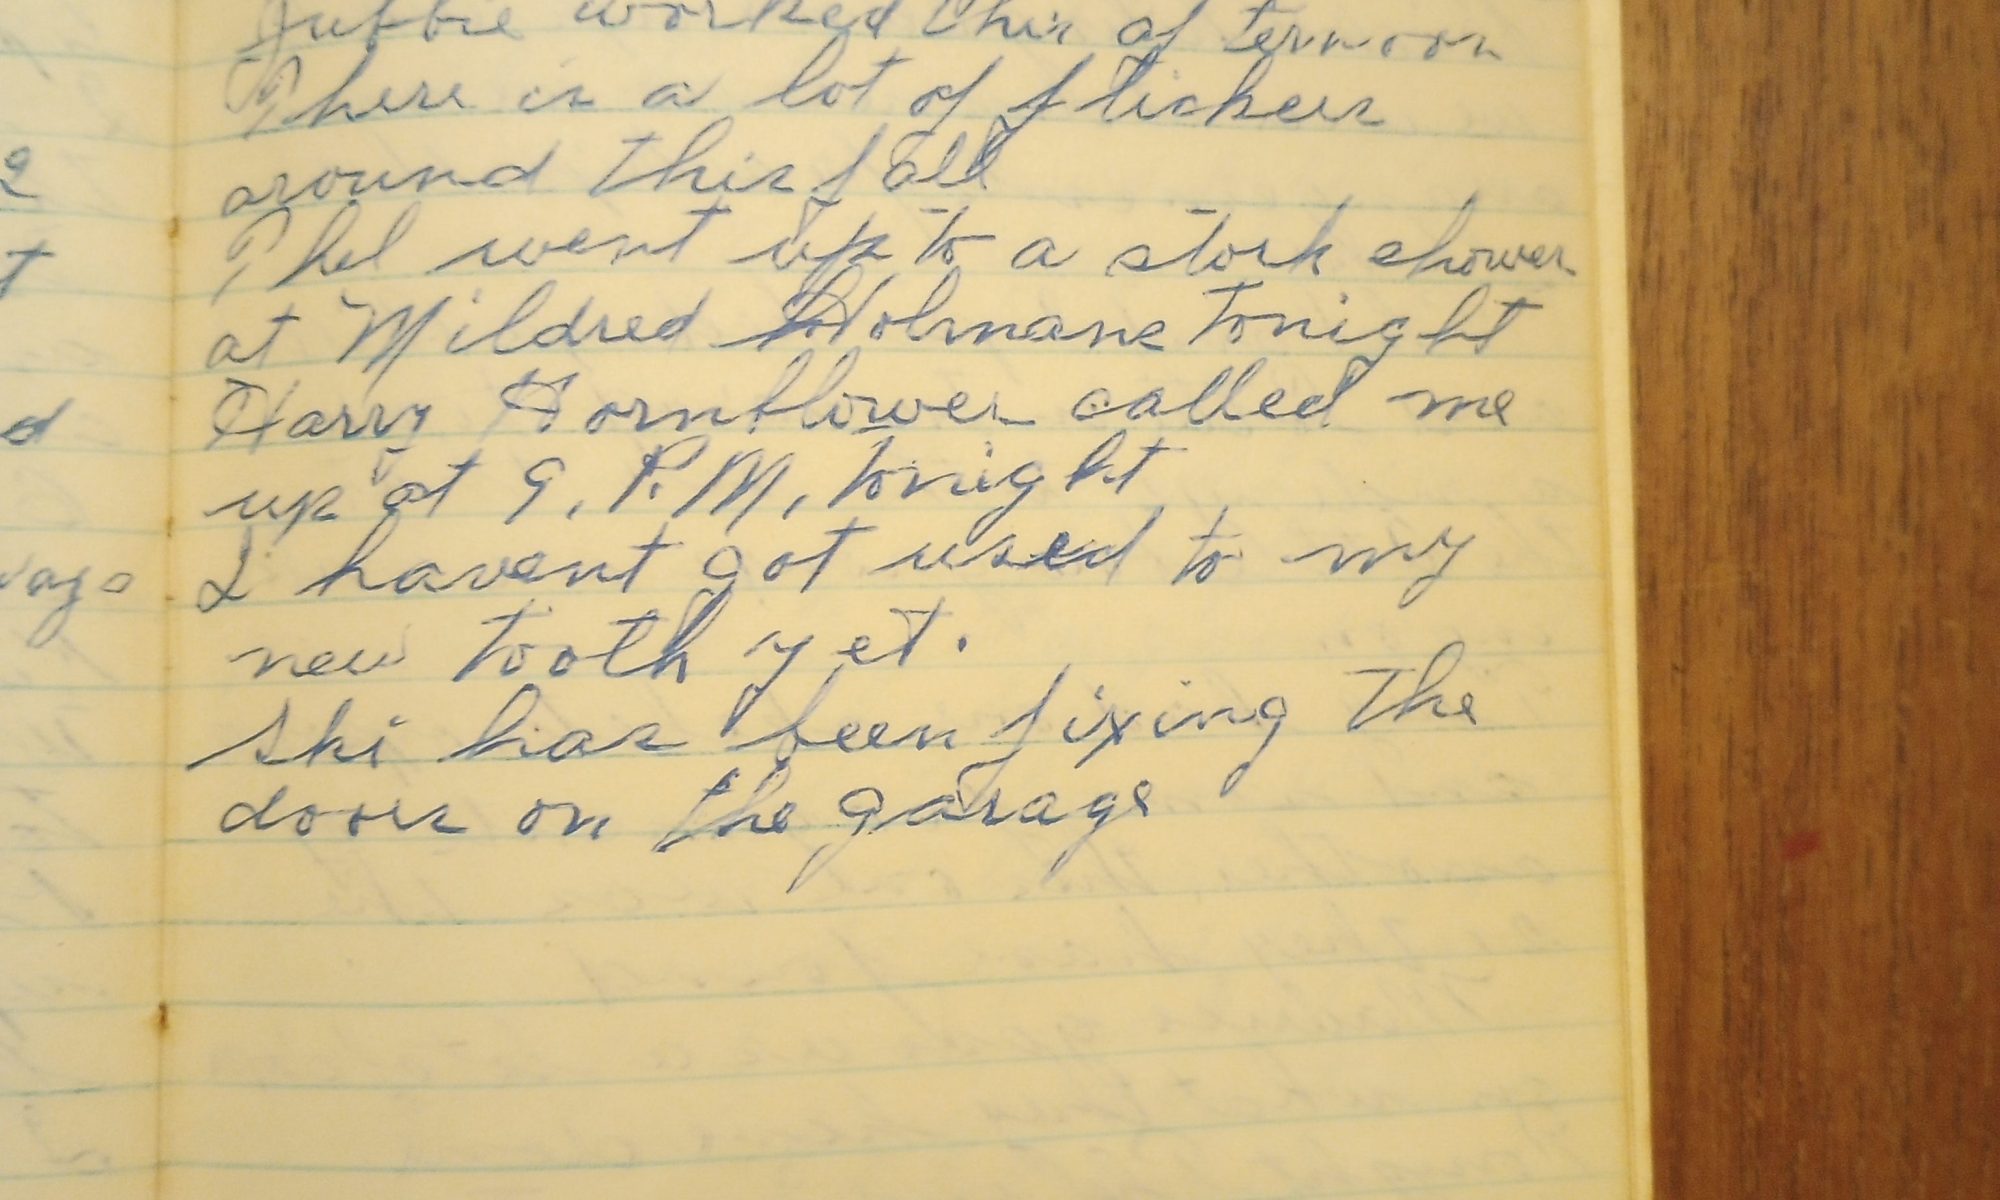 worked this afternoon
There is a lot of flickers
around this fall
Phel went up to a stork shower
at Mildred Holmans tonight
Harry Hornblower called me
up at 9. P.M, tonight
I havent got used to my
new tooth yet.
Ski has been fixing the
doors on the garage